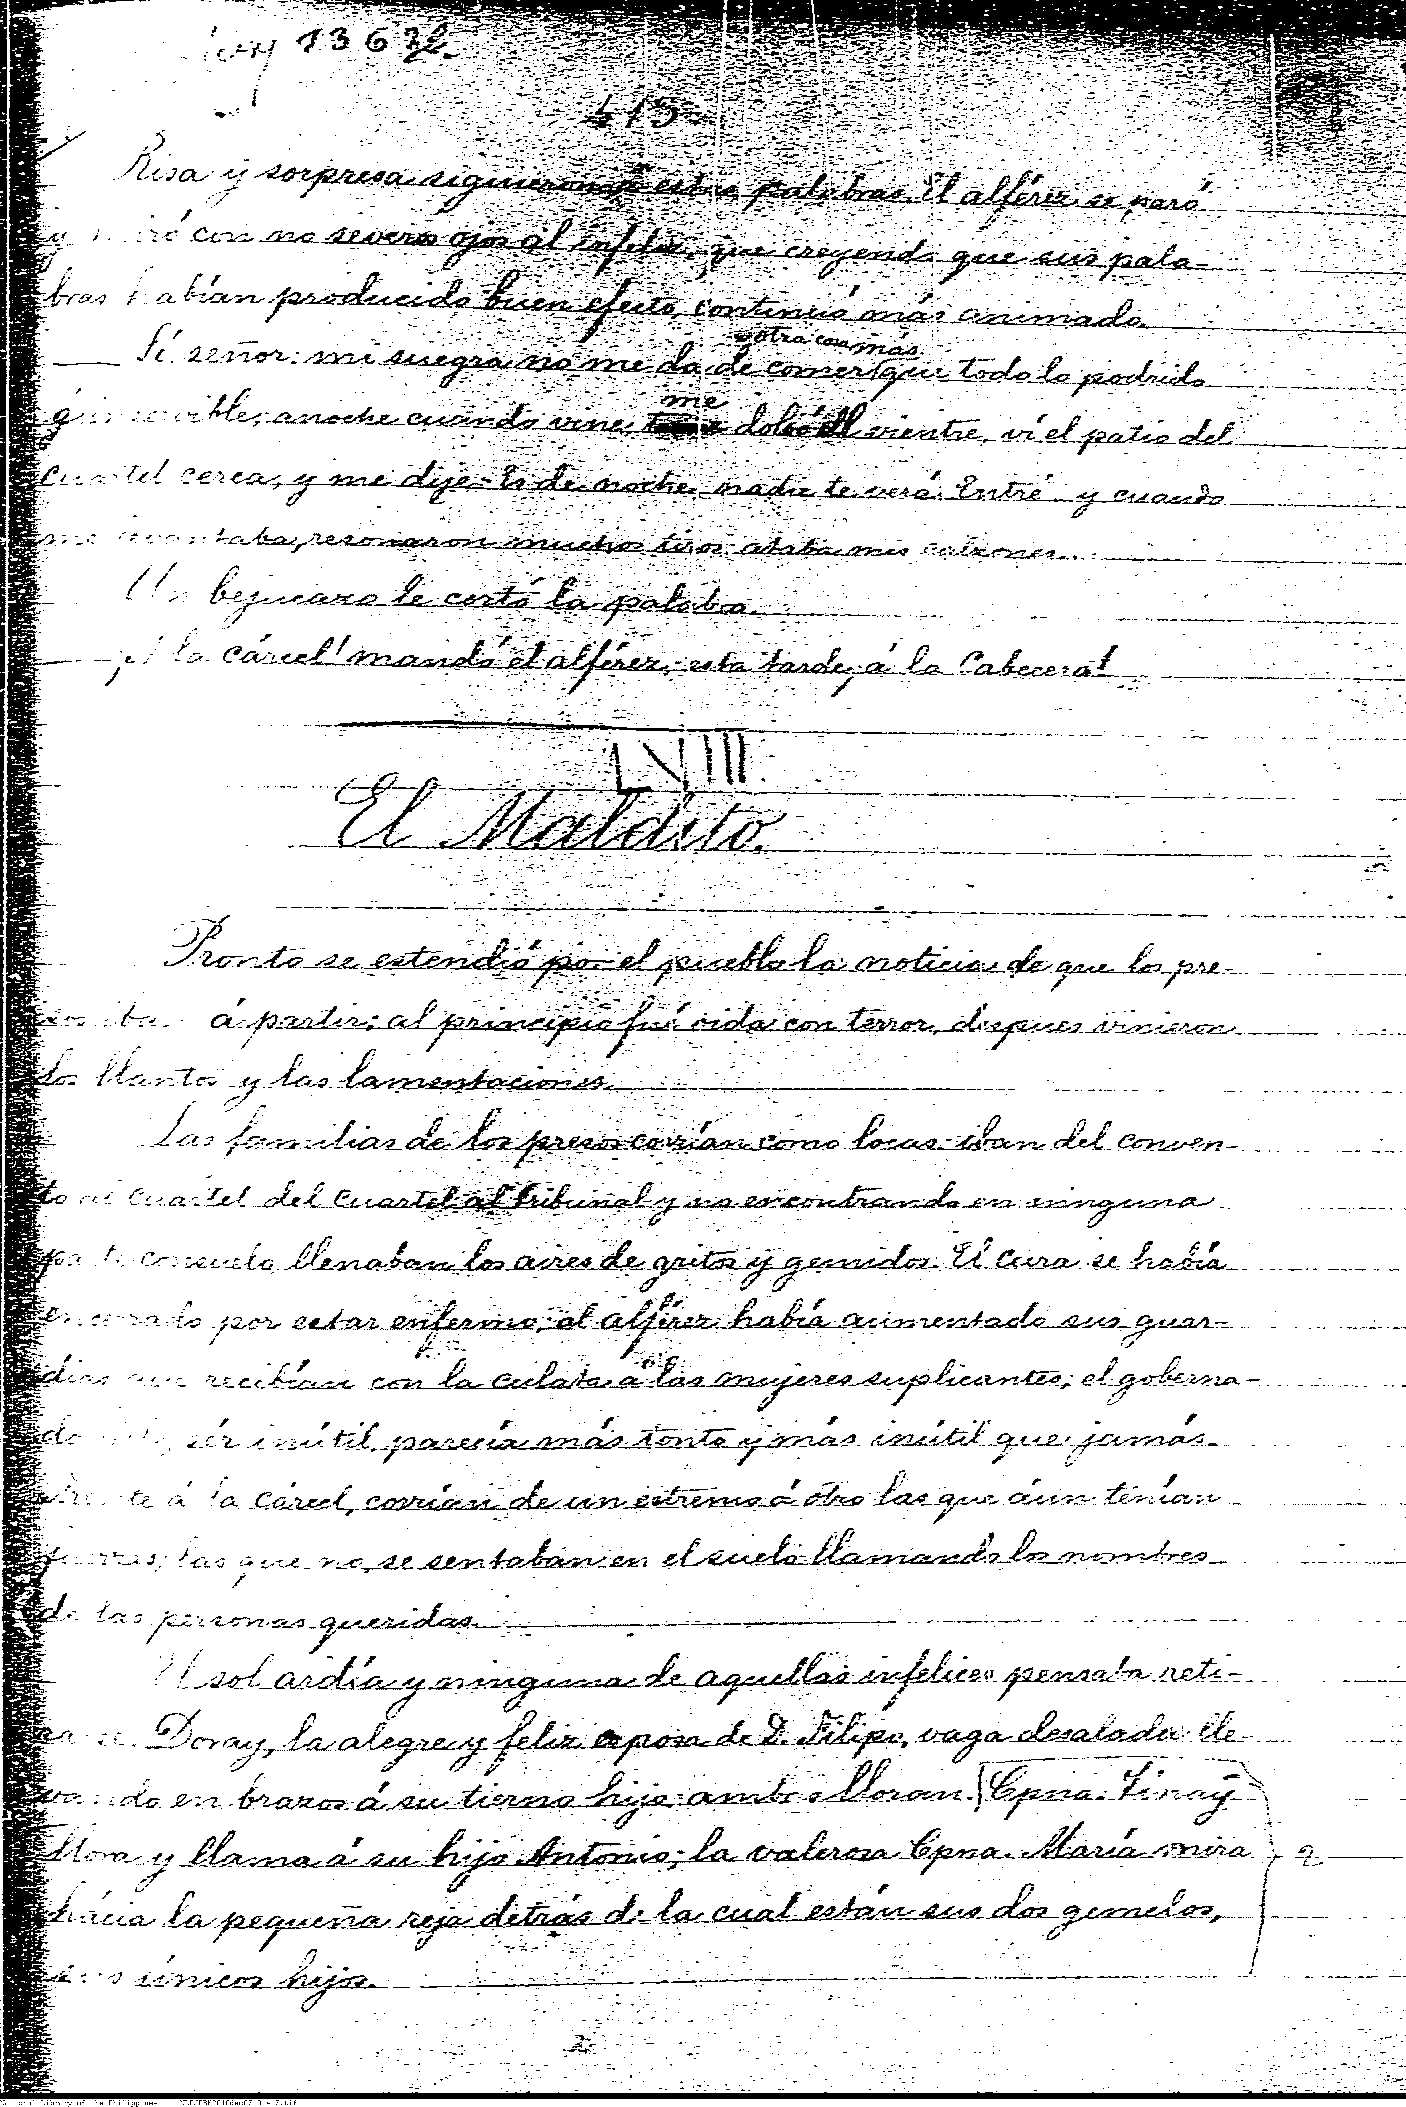 1363
413
Risa y sorpresa siguieron á estas palabras. El alférez se paró
y miró con no severos ojos al infeliz, que creyendo que sus pala-
bras habían producido buen efecto, continuó más animado
otra cosa más
— Sí señor: mi suegra no me da de comer que todo lo podrido
é inservible; anoche cuando vine
me
dolió el vientre, ví el patio del
cuartel cerca, y me dije: Es de noche, nadie te verá. Entré y cuando
me levantaba, resonaron muchos tiros: ataba mis calzones...
Un bejucazo le cortó la palabra.
— ¡Á la cárcel! mandó el alférez; esta tarde, á la Cabecera!
LVIII.
El Maldito.
Pronto se estendió por el pueblo la noticia de que los pre-
sos iban á partir; al principio fué oida con terror, despues vinieron
los llantos y las lamentaciones.
Las familias de los presos corrían como locas: iban del conven-
to al cuartel del cuartel al tribunal y no encontrando en ninguna
parte consuelo llenaban los aires de gritos y gemidos. El cura se había
encerrado por estar enfermo; al alférez había aumentado sus guar-
dias que recibían con la culata á las mujeres suplicantes; el goberna-
ser inútil, parecía más tonto y más inútil que jamás.
Frente á la cárcel, corrían de un estremo á otro las que áun tenían
fuerzas; las que no, se sentaban en el suelo llamando los nombres
de las personas queridas.
El sol ardía y ninguna de aquellas infelices pensaba reti-
rarse. Doray, la alegre y feliz esposa de D. Filipo, vaga desalada lle-
vando en brazos á su tierno hijo: ambos lloran. Cpna. Tinay
llora y llama á su hijo Antonio; la valerosa Cpna. María mira 2
hácia la pequeña reja detrás de la cual están sus dos gemelos,
sus únicos hijos.